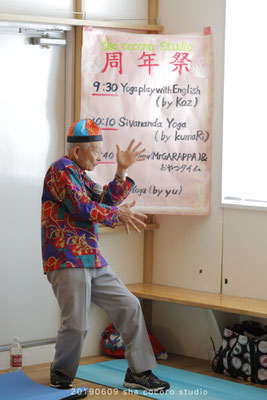 sha cocoro studio
周年祭
9:30 Yoga play with English
(by Koz)
10:10 Sivananda Yoga
(by kumaRi)
:40
(MrGARAPPA)&
おやつタイム
Yoga (by yu)
20190609 sha cocoro studio